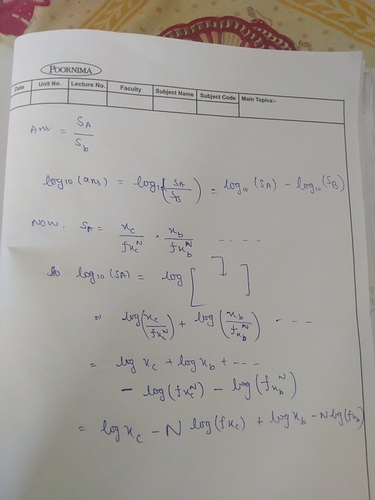 POORNIMA
Date Unit No. Lecture No. Faculty Subject Name Subject Code Main Topics:-
Ans = S_A / S_b
log₁₀(ans) = log₁₀(S_A / S_B) = log₁₀(S_A) - log₁₀(S_B)
Now. S_A = x_c / fx_c^N * x_b / fx_b^N ----
So log₁₀(S_A) = log [ ]
= log(x_c / fx_c^N) + log(x_b / fx_b^N) ---
= log x_c + log x_b + ---
- log(fx_c^N) - log(fx_b^N)
= log x_c - N log(fx_c) + log x_b - N log(fx_b)